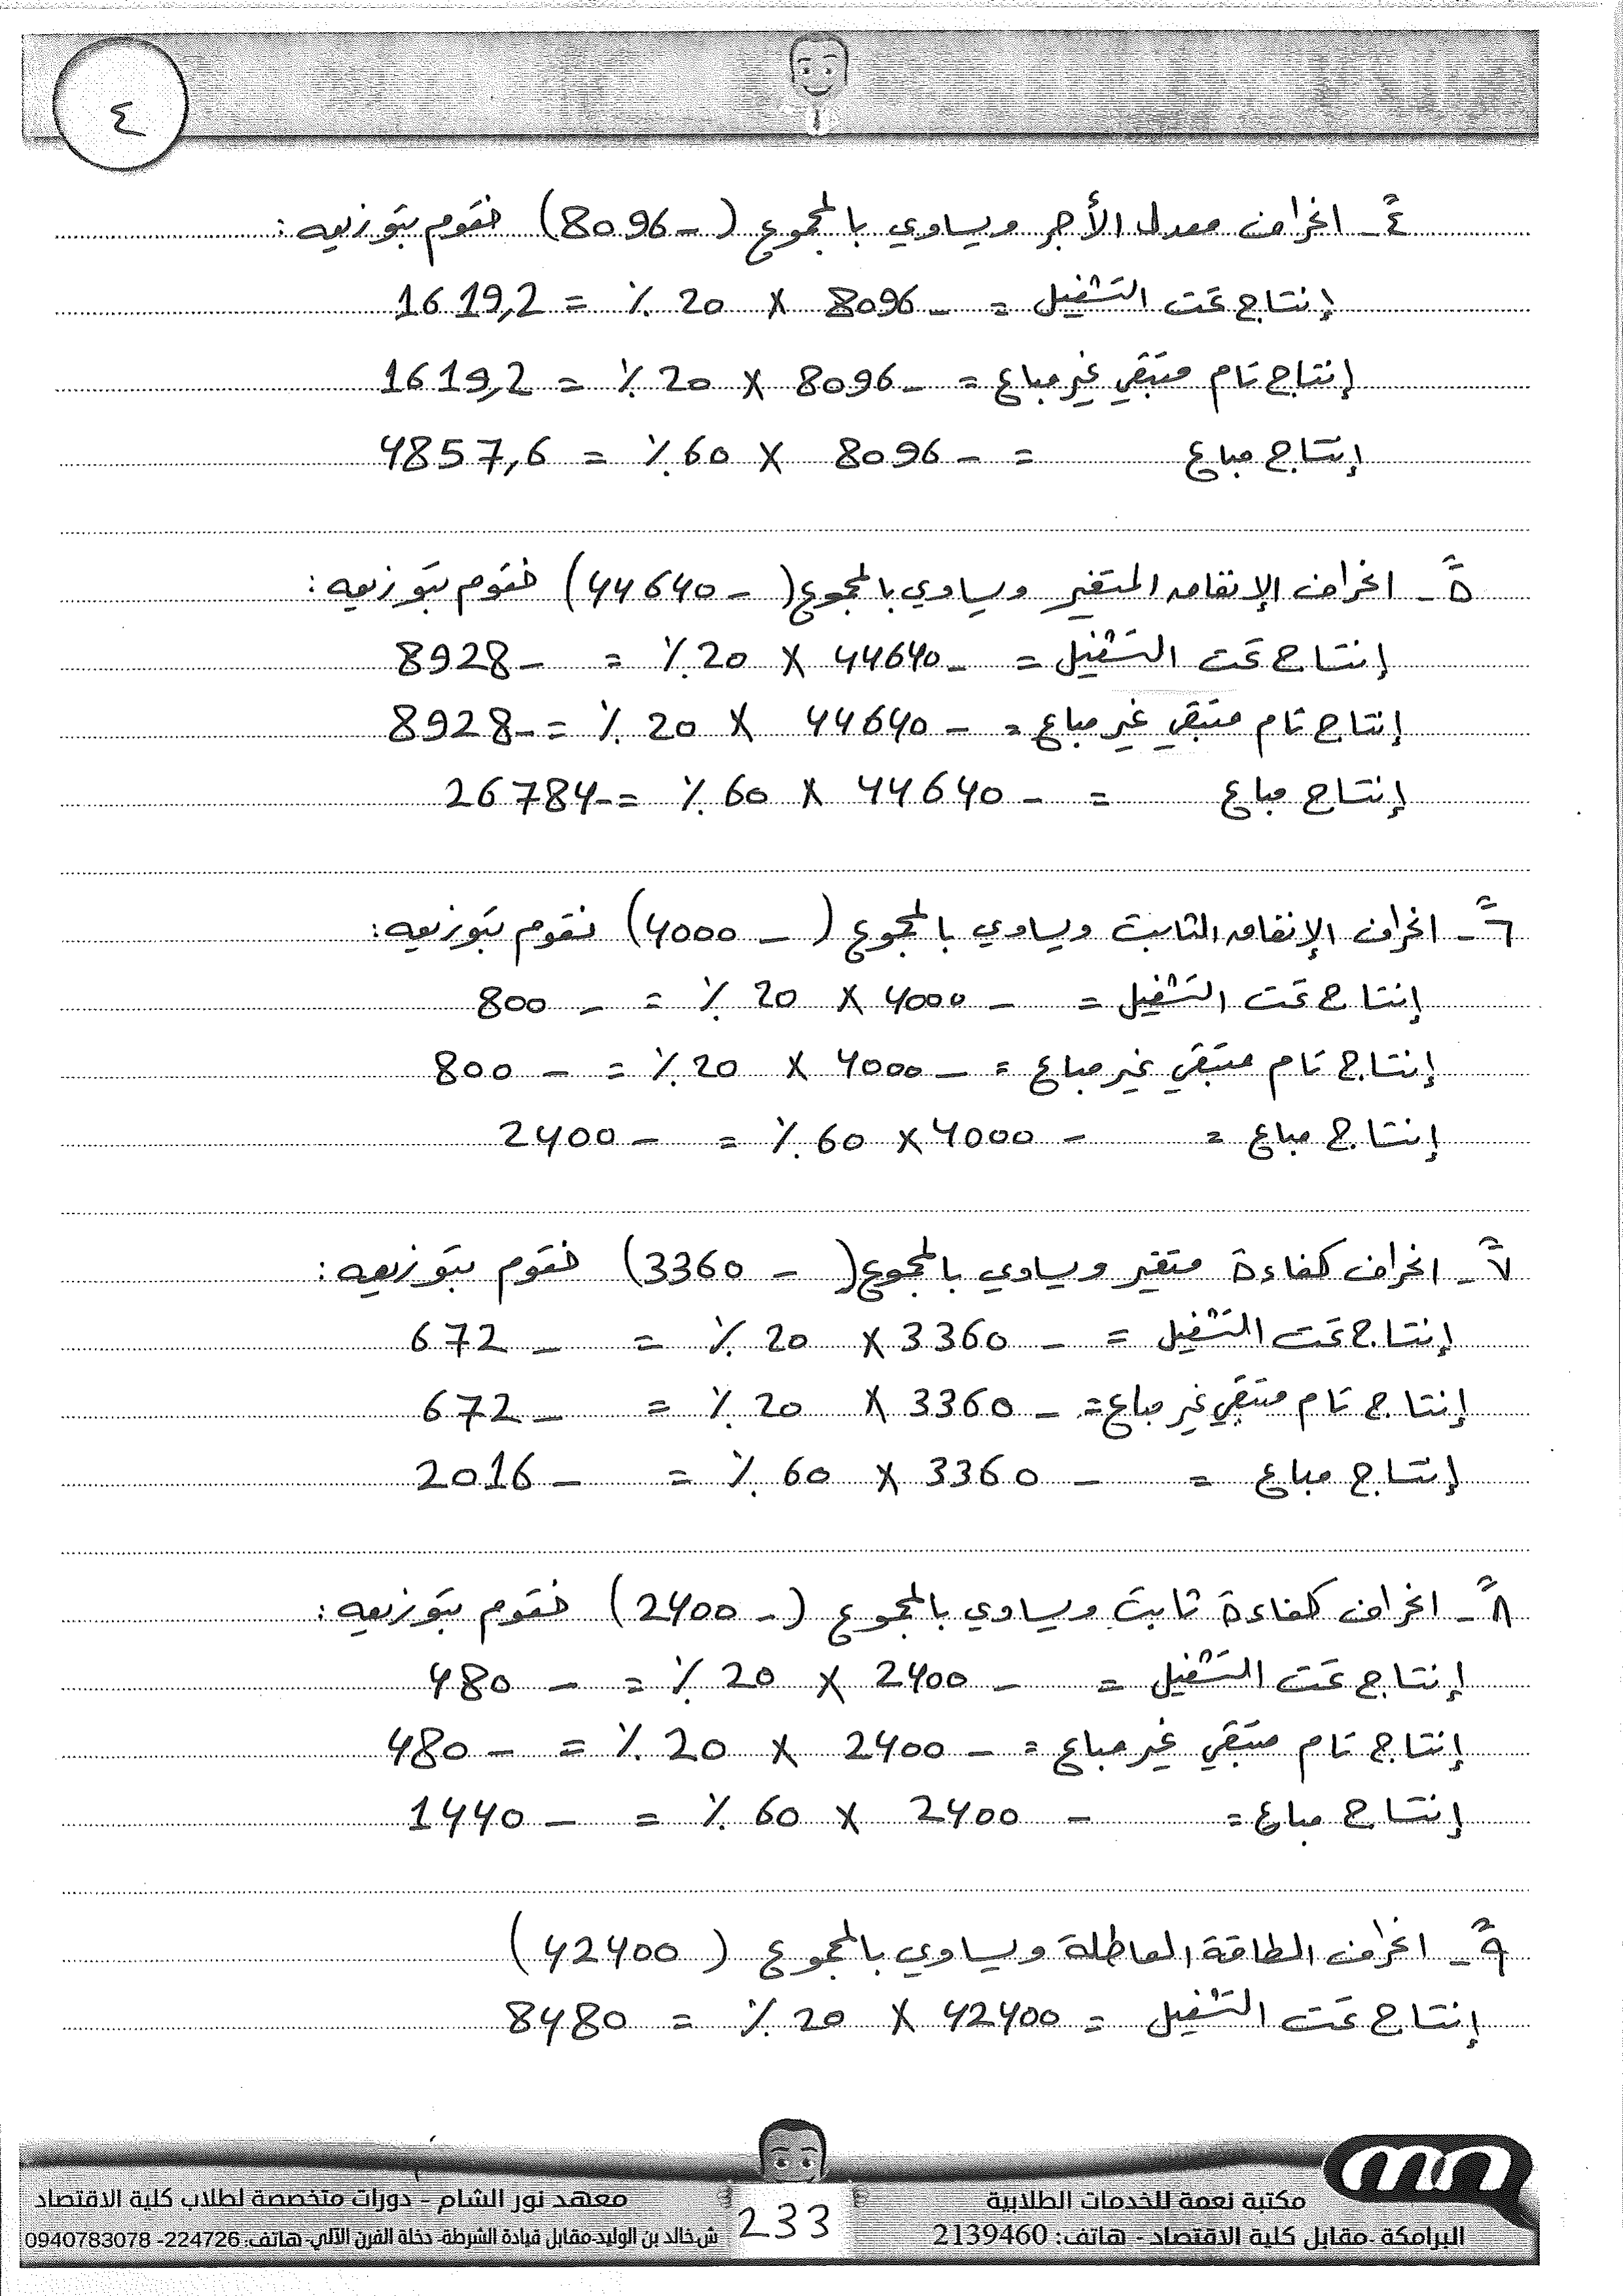 ٤
٤ً- انحراف معدل الأجر ويساوي بالمجموع (-8096) فنقوم بتوزيعه:
إنتاج تحت التشغيل = -8096 × 20 ٪ = 1619,2
إنتاج تام متبقي غير مباع = -8096 × 20 ٪ = 1619,2
إنتاج مباع = -8096 × 60 ٪ = 4857,6
٥ً- انحراف الإنفاق المتغير ويساوي بالمجموع (-44640) فنقوم بتوزيعه:
إنتاج تحت التشغيل = -44640 × 20 ٪ = -8928
إنتاج تام متبقي غير مباع = -44640 × 20 ٪ = -8928
إنتاج مباع = -44640 × 60 ٪ = -26784
٦ً- انحراف الإنفاق الثابت ويساوي بالمجموع (-4000) نقوم بتوزيعه:
إنتاج تحت التشغيل = -4000 × 20 ٪ = -800
إنتاج تام متبقي غير مباع = -4000 × 20 ٪ = -800
إنتاج مباع = -4000 × 60 ٪ = -2400
٧ً- انحراف كفاءة متغير ويساوي بالمجموع (-3360) فنقوم بتوزيعه:
إنتاج تحت التشغيل = -3360 × 20 ٪ = -672
إنتاج تام متبقي غير مباع = -3360 × 20 ٪ = -672
إنتاج مباع = -3360 × 60 ٪ = -2016
٨ً- انحراف كفاءة ثابت ويساوي بالمجموع (-2400) فنقوم بتوزيعه:
إنتاج تحت التشغيل = -2400 × 20 ٪ = -480
إنتاج تام متبقي غير مباع = -2400 × 20 ٪ = -480
إنتاج مباع = -2400 × 60 ٪ = -1440
٩ً- انحراف الطاقة العاطلة ويساوي بالمجموع (42400)
إنتاج تحت التشغيل = 42400 × 20 ٪ = 8480
مكتبة نعمة للخدمات الطلابية
البرامكة -مقابل كلية الاقتصاد - هاتف: 2139460
233
معهد نور الشام - دورات متخصصة لطلاب كلية الاقتصاد
ش.خالد بن الوليد-مقابل قيادة الشرطة- دخلة الفرن الآلي- هاتف: 224726- 0940783078